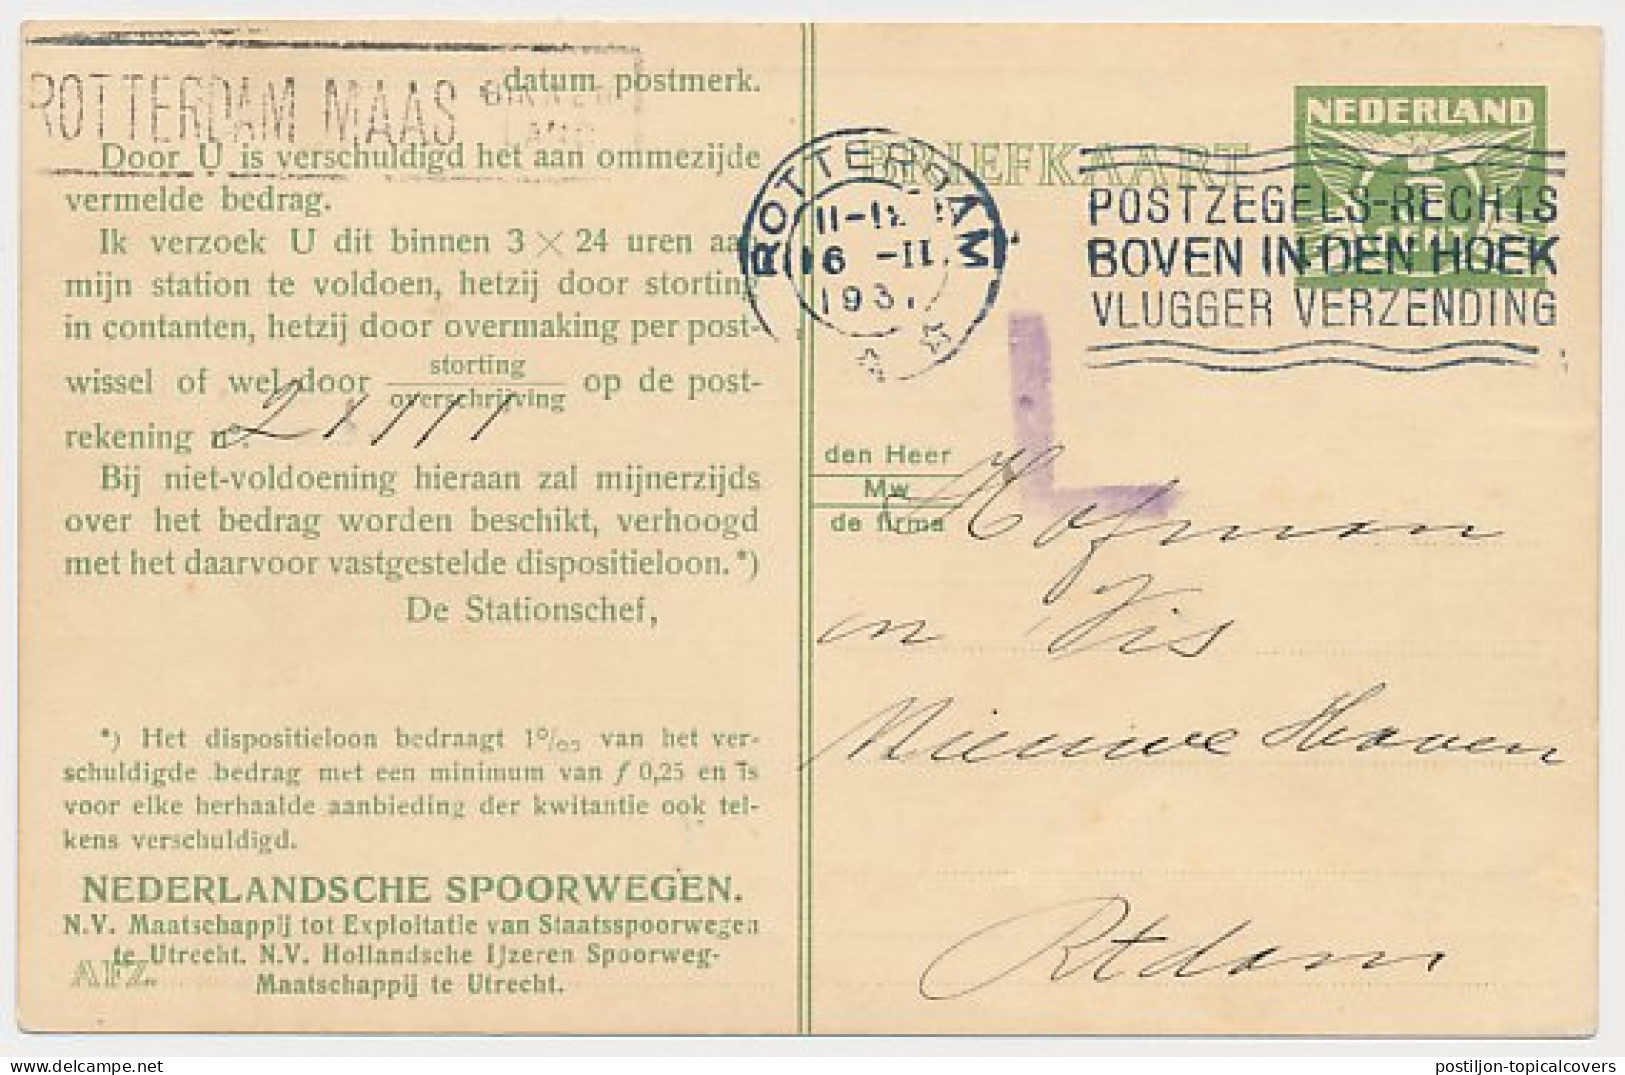 ROTTERDAM MAAS
datum postmerk.
Door U is verschuldigd het aan ommezijde
vermelde bedrag.
Ik verzoek U dit binnen 3 × 24 uren aan
mijn station te voldoen, hetzij door storting
in contanten, hetzij door overmaking per post-
wissel of wel door storting overschrijving op de post-
rekening nº. 21111
Bij niet-voldoening hieraan zal mijnerzijds
over het bedrag worden beschikt, verhoogd
met het daarvoor vastgestelde dispositieloon.*)
De Stationschef,
*) Het dispositieloon bedraagt 1º/₀₀ van het ver-
schuldigde bedrag met een minimum van f 0,25 en is
voor elke herhaalde aanbieding der kwitantie ook tel-
kens verschuldigd.
NEDERLANDSCHE SPOORWEGEN.
N.V. Maatschappij tot Exploitatie van Staatsspoorwegen
te Utrecht. N.V. Hollandsche IJzeren Spoorweg-
Maatschappij te Utrecht.
AFZ.
BRIEFKAART
NEDERLAND
ROTTERDAM
11-12
16 -II
193
POSTZEGELS-RECHTS
BOVEN IN DEN HOEK
VLUGGER VERZENDING
L
den Heer
Mw
de firma
Hofman
en Vis
Nieuwe Haven
Rtdam
postiljon-topicalcovers